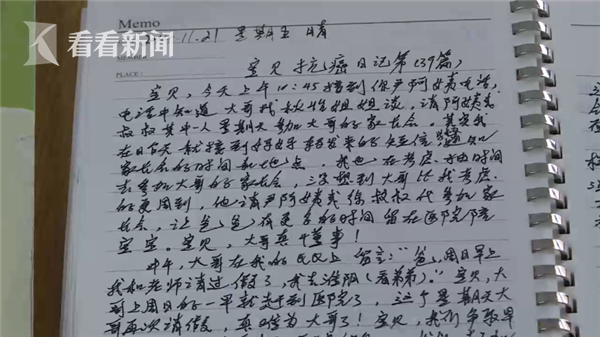 Memo
看看新闻
11-21 星期五 晴
宝贝抗癌日记第(39篇)
PLACE:
宝贝,今天上午10:45接到你严阿姨电话,
电话中知道大哥找 姐姐谈,请阿姨或
叔叔其中一人星期天参加大哥的家长会。其实我
在日前天就接到好好 转发来的短信 通知
家长会的时间和地点。我也在考虑抽时间
去参加大哥的家长会,没想到大哥比我考虑
的更周到,他请严阿姨或徐叔叔代参加家
长会,让爸爸有更多的时间留在医院陪
宝宝。宝贝,大哥真懂事!
中午,大哥在我的QQ上留言:“爸,周日早上
我和老师请过假了,我去淮阴(看弟弟)。”宝贝,大
哥上周日的一早就 到医院了,这个星期天大
哥再次请假,真难为大哥了!宝贝,我们争取早